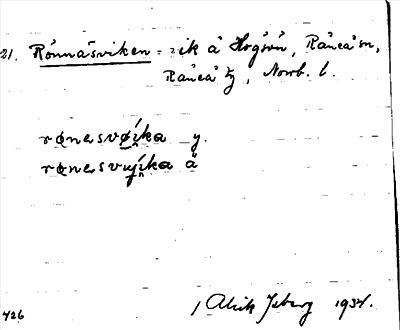 21. Rönnåsviken = vik å Hogsön, Råneå sn,
Råneå tg, Norrb. l.
rønesvøi̯ka y.
rønesvųi̯ka ä
426
/ Alrik Isberg 1934.